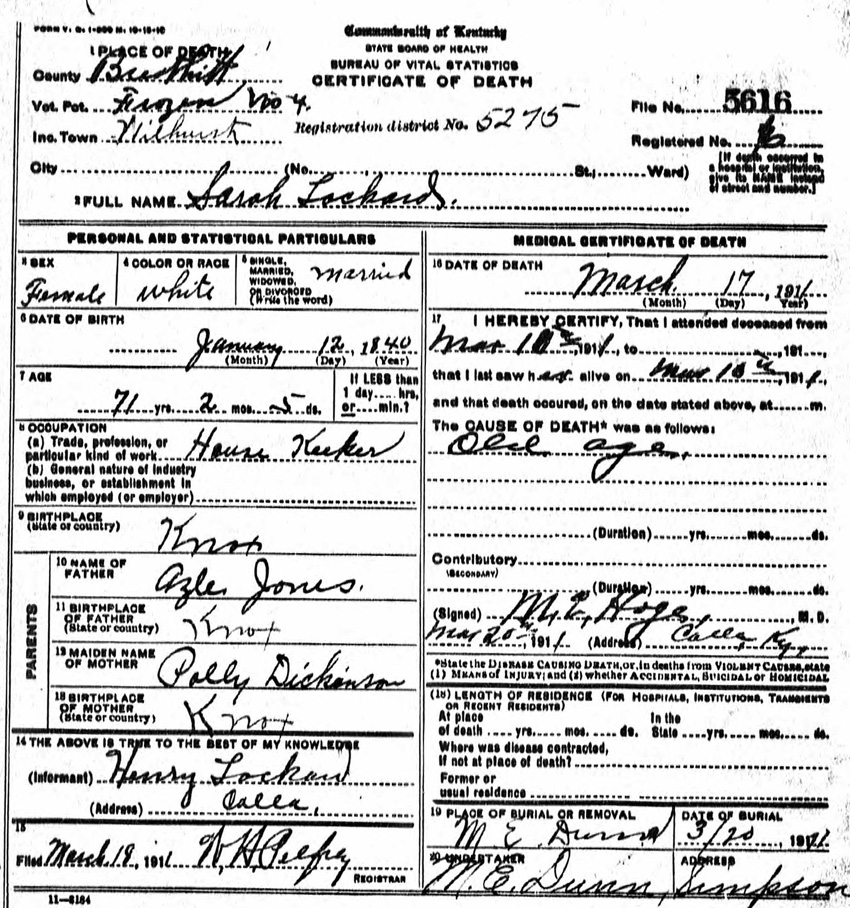 FORM V. S. 1-200 M. 10-15-10
Commonwealth of Kentucky
STATE BOARD OF HEALTH
BUREAU OF VITAL STATISTICS
CERTIFICATE OF DEATH
1 PLACE OF DEATH
County Breathitt
Vot. Pct. Frozen No 4.
Inc. Town Wilhurst
Registration district No. 5275
File No. 5616
Registered No. 6
[If death occurred in a hospital or institution, give its NAME instead of street and number.]
City (No. St.; Ward)
2 FULL NAME Sarah Lockard.
PERSONAL AND STATISTICAL PARTICULARS
3 SEX Female
4 COLOR OR RACE white
5 SINGLE, MARRIED, WIDOWED, OR DIVORCED (Write the word) married
6 DATE OF BIRTH
January 12, 1840
(Month) (Day) (Year)
7 AGE
71 yrs. 2 mos. 5 ds.
If LESS than 1 day.... hrs, or.... min.?
8 OCCUPATION
(a) Trade, profession, or particular kind of work House Keeker
(b) General nature of industry business, or establishment in which employed (or employer)
9 BIRTHPLACE
(State or country) Knox
PARENTS
10 NAME OF FATHER Azle Jones.
11 BIRTHPLACE OF FATHER (State or country) Knox
12 MAIDEN NAME OF MOTHER Polly Dickinson
13 BIRTHPLACE OF MOTHER (State or country) Knox
14 THE ABOVE IS TRUE TO THE BEST OF MY KNOWLEDGE
(Informant) Henry Lockard
(Address) Calla,
15
Filed March 19, 1911 W. H. Pelfrey
REGISTRAR
11-5184
MEDICAL CERTIFICATE OF DEATH
16 DATE OF DEATH
March 17, 1911
(Month) (Day) (Year)
17 I HEREBY CERTIFY, That I attended deceased from
Mar 10th, 1911, to , 191
that I last saw her alive on Mar 10th, 1911,
and that death occured, on the date stated above, at m.
The CAUSE OF DEATH* was as follows:
Old age.
(Duration) yrs. mos. ds.
Contributory
(SECONDARY)
(Duration) yrs. mos. ds.
(Signed) M. E. Hoge, M. D.
Mar 20th, 1911 (Address) Calla, Ky,
*State the DISEASE CAUSING DEATH, or, in deaths from VIOLENT CAUSES, state
(1) MEANS OF INJURY; and (2) whether ACCIDENTAL, SUICIDAL or HOMICIDAL
(18) LENGTH OF RESIDENCE (FOR HOSPITALS, INSTITUTIONS, TRANSIENTS OR RECENT RESIDENTS)
At place of death yrs. mos. ds. In the State yrs. mos. ds.
Where was disease contracted, If not at place of death?
Former or usual residence
19 PLACE OF BURIAL OR REMOVAL M. E. Dunn
DATE OF BURIAL 3/20, 1911
20 UNDERTAKER M. E. Dunn,
ADDRESS Simpson